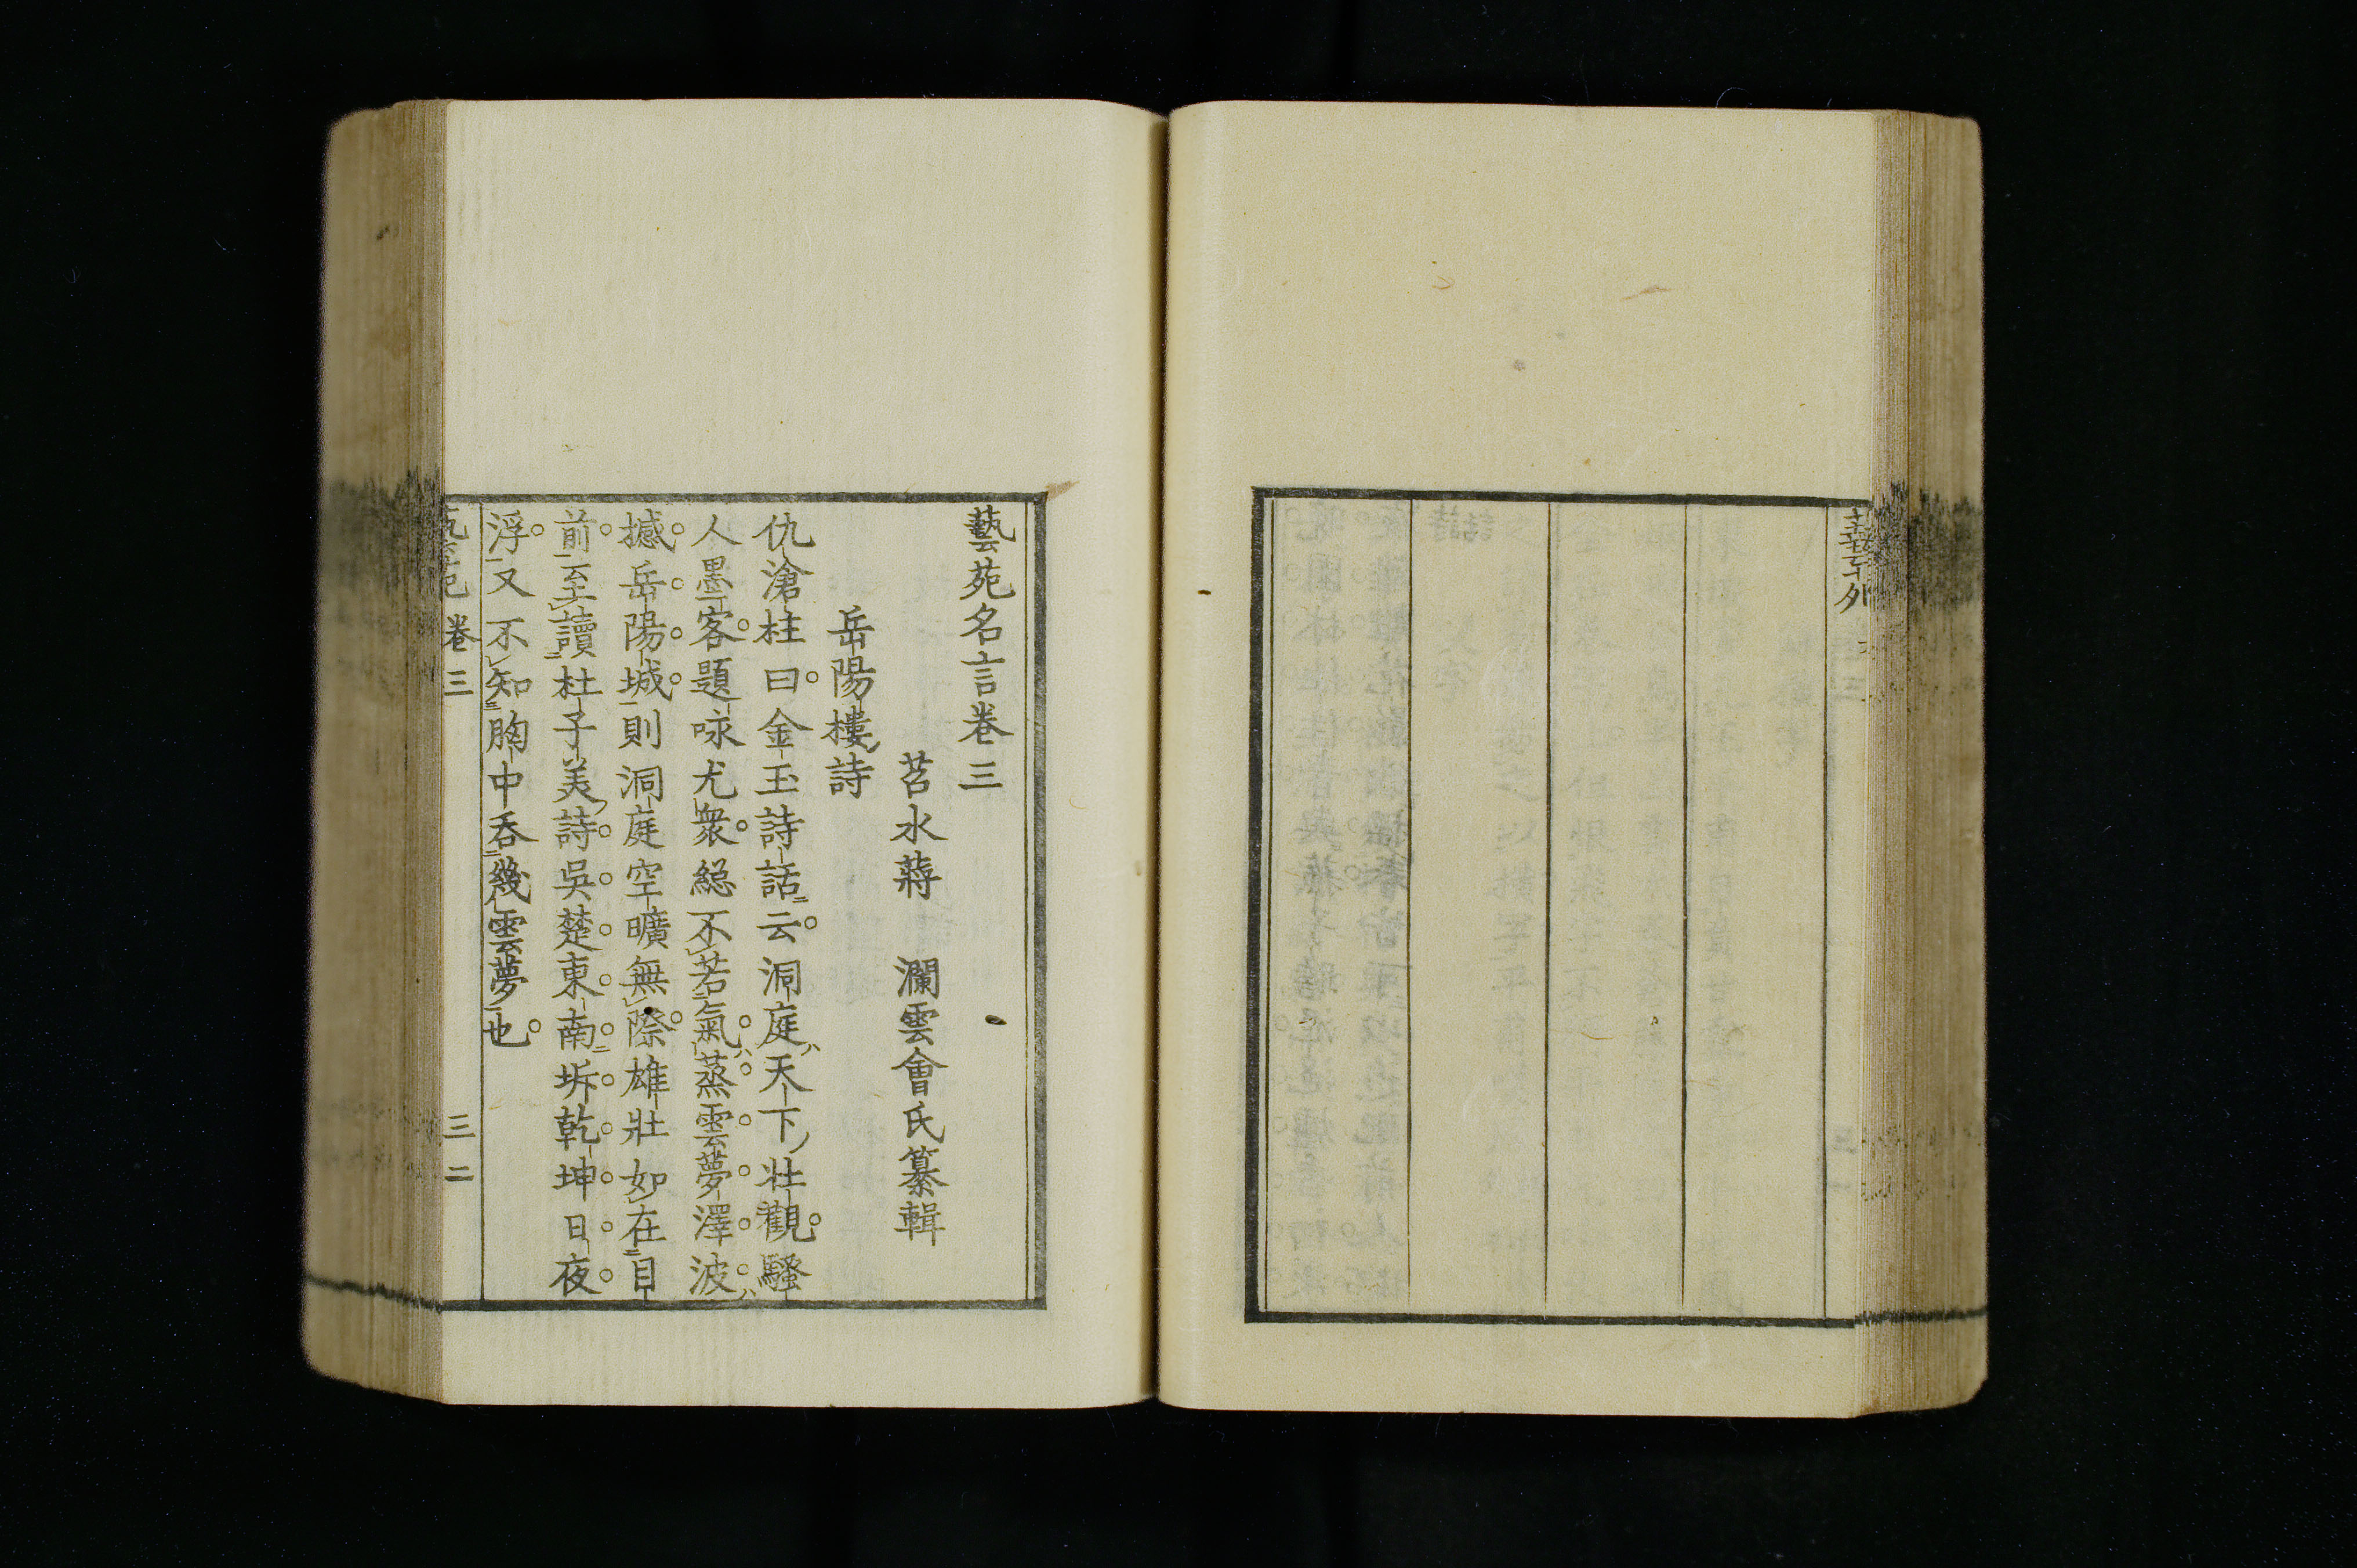 藝苑名言卷三
苕水蔣　瀾雲會氏纂輯
岳陽樓詩
仇滄柱曰金玉詩話云洞庭天下壯觀騷
人墨客題咏尤衆總不若氣蒸雲夢澤波
撼岳陽城則洞庭空曠無際雄壯如在目
前至讀杜子美詩吳楚東南坼乾坤日夜
浮又不知胸中吞幾雲夢也
卷三　三二